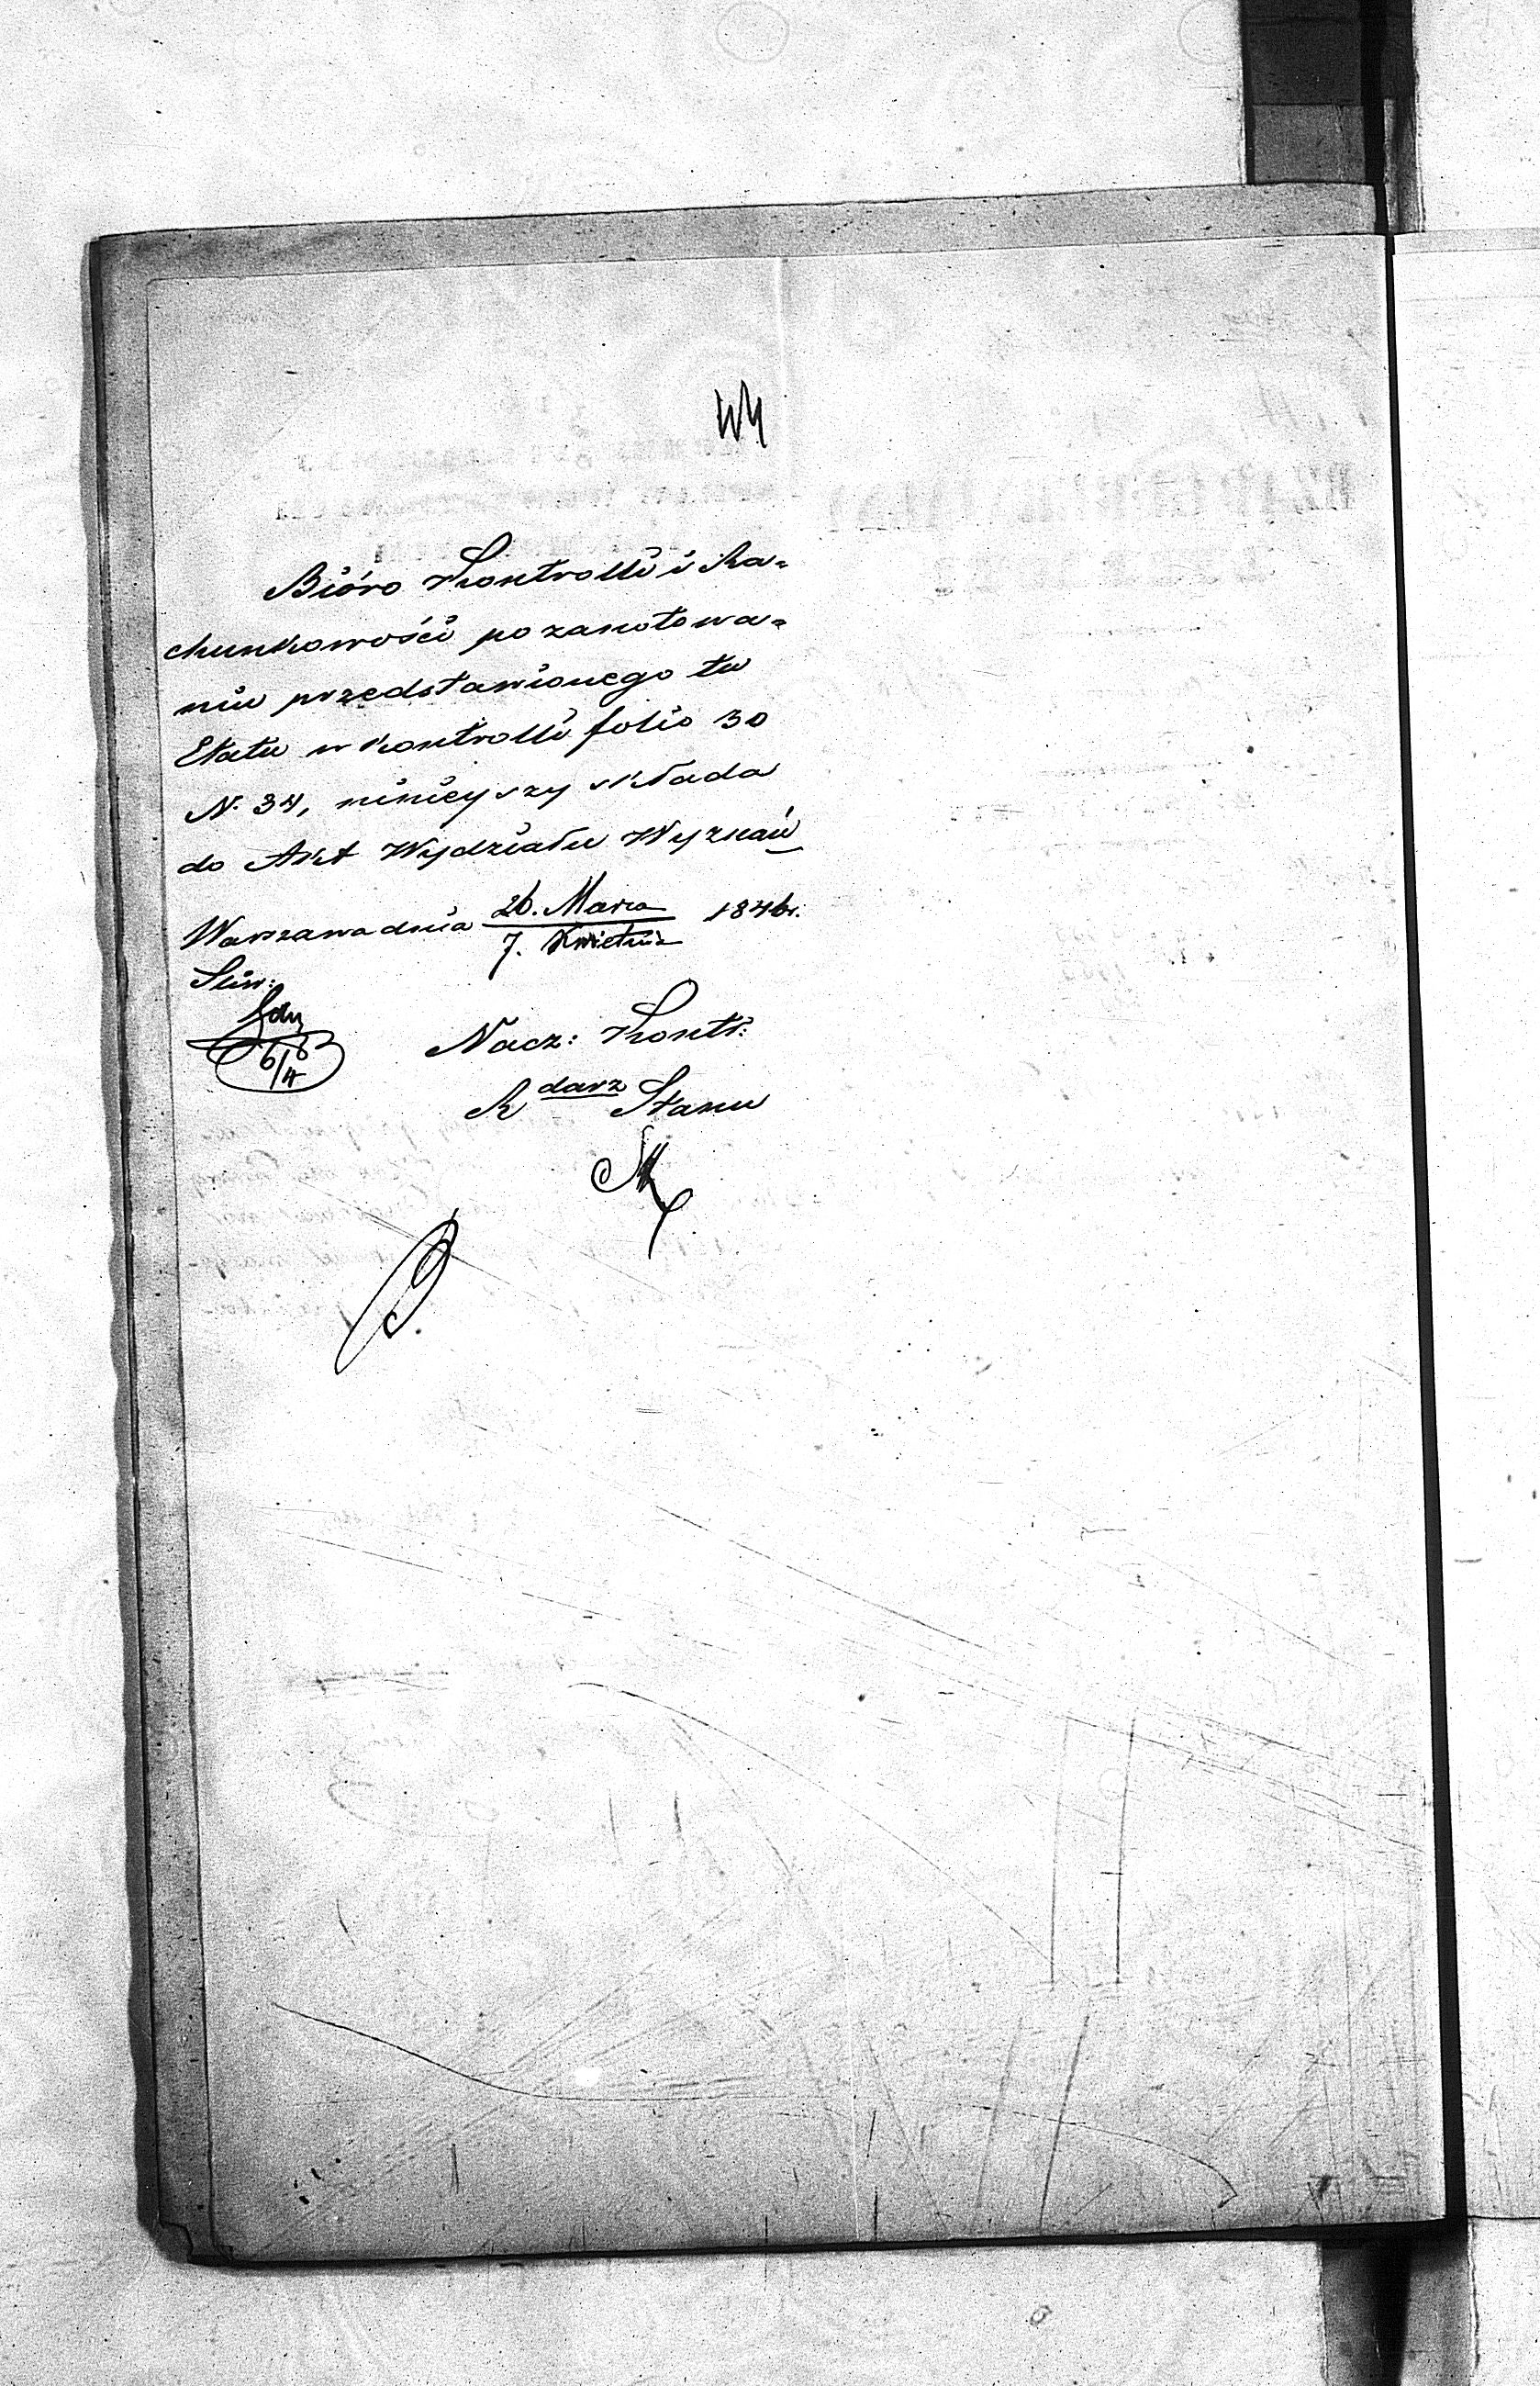 WM
Bióro Kontrolli i Ra=
chunkowości po zanotowa=
niu przedstawionego tu
Etatu w kontrolli folio 30
N. 34, ninieyszy składa
do Akt Wydziału Wyznań
Warszawa dnia 26. Marca / 7. Kwietnia 1846 r.
Nacz: Kontr:
R darz Stanu
6/4